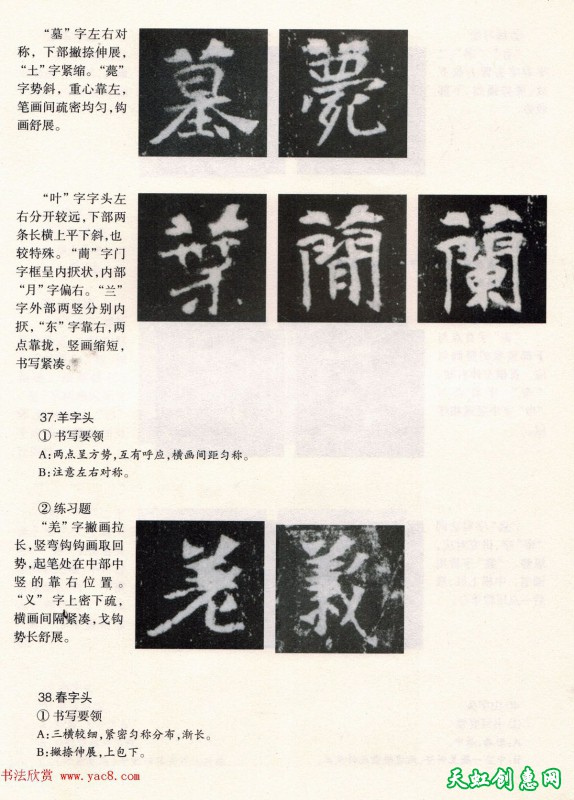 “墓”字左右对
称，下部撇捺伸展，
“土”字紧缩。“薨”
字势斜，重心靠左，
笔画间疏密均匀，钩
画舒展。
墓 薨
“叶”字字头左
右分开较远，下部两
条长横上平下斜，也
较特殊。“蕳”字门
字框呈内抧状，内部
“月”字偏右。“兰”
字外部两竖分别内
抧，“东”字靠右，两
点靠拢，竖画缩短，
书写紧凑。
葉 蕳 蘭
37.羊字头
①书写要领
A:两点呈方势，互有呼应，横画间距匀称。
B:注意左右对称。
②练习题
“羌”字撇画拉
长，竖弯钩钩画取回
势，起笔处在中部中
竖的靠右位置。
“义”字上密下疏，
横画间隔紧凑，戈钩
势长舒展。
羌 義
38.春字头
①书写要领
A:三横较细，紧密匀称分布，渐长。
B:撇捺伸展，上包下。
书法欣赏 www.yac8.com
天虹创意网